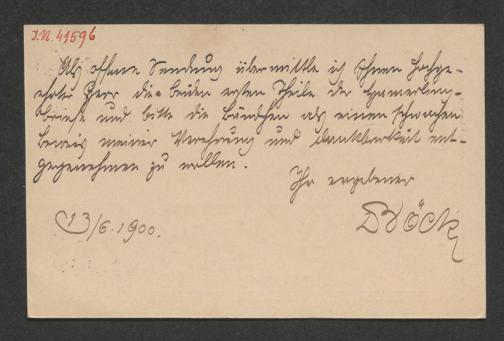 J.N. 41596
Als offene Sendung übermittle ich Ihnen hochge-
ehrter Herr die beiden ersten Theile der Hamerling-
briefe und bitte die Bändchen als einen schwachen
Beweis meiner Verehrung und Dankbarkeit ent-
gegenehmen zu wollen.
Ihr ergebener
13/6.1900.
Böck